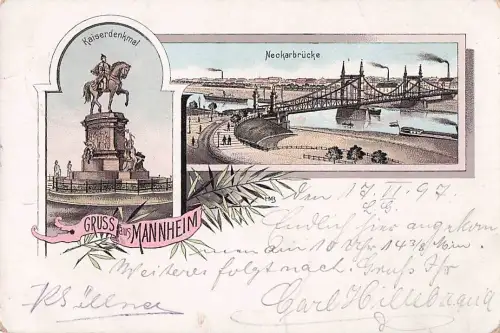 Kaiserdenkmal
Neckarbrücke
GRUSS aus MANNHEIM
den 17. II. 97.
Endlich hier angekom
men um 10 Uhr 14 3/4 Min.
Weiteres folgt nach. Gruß Ihr
Carl Hillebrand